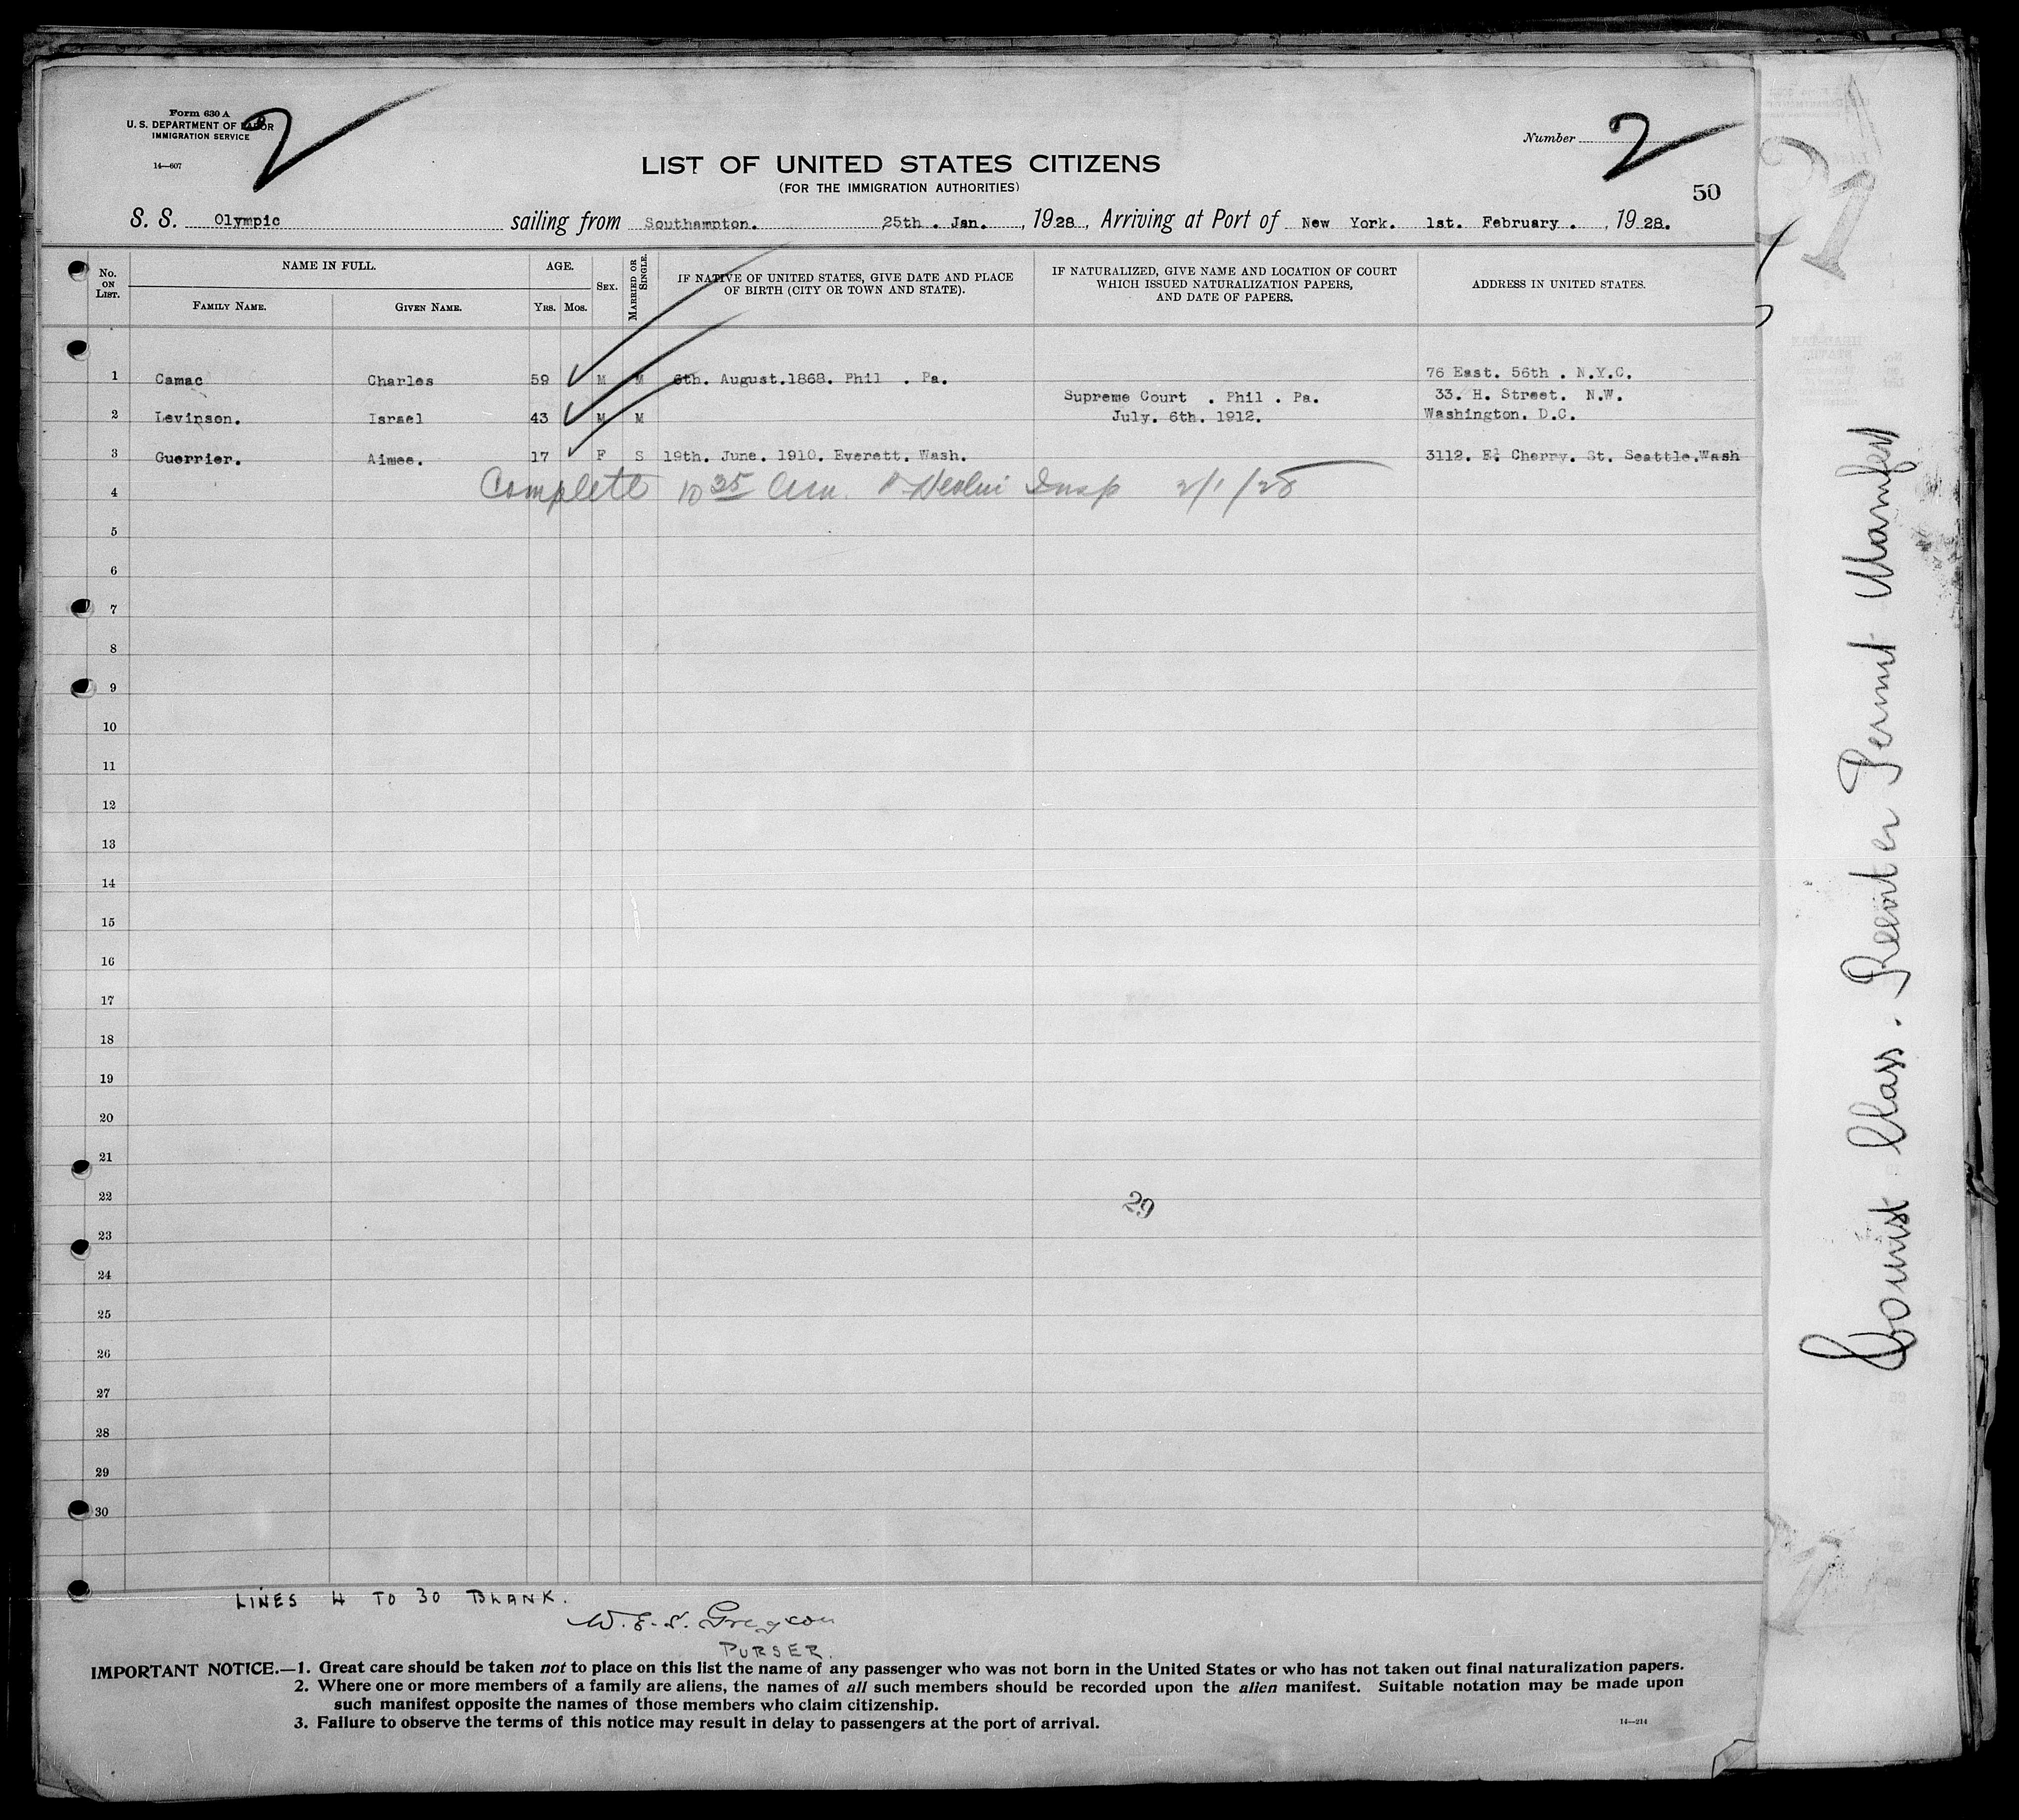 Form 630 A
U. S. DEPARTMENT OF LABOR
IMMIGRATION SERVICE
14—607
2
Number 2
LIST OF UNITED STATES CITIZENS
(FOR THE IMMIGRATION AUTHORITIES)
50
S. S. Olympic sailing from Southampton. 25th . Jan. , 1928 , Arriving at Port of New York. 1st. February . , 1928.
No. ON LIST. NAME IN FULL. AGE. SEX. MARRIED OR SINGLE. IF NATIVE OF UNITED STATES, GIVE DATE AND PLACE OF BIRTH (CITY OR TOWN AND STATE). IF NATURALIZED, GIVE NAME AND LOCATION OF COURT WHICH ISSUED NATURALIZATION PAPERS, AND DATE OF PAPERS. ADDRESS IN UNITED STATES.
FAMILY NAME. GIVEN NAME. YRS. MOS.
1 Camac Charles 59 M M 6th. August.1868. Phil . Pa. 76 East. 56th . N.Y.C.
Supreme Court . Phil . Pa. 33. H. Street. N.W.
2 Levinson. Israel 43 M M July. 6th. 1912. Washington. D.C.
3 Guerrier. Aimee. 17 F S 19th. June. 1910. Everett. Wash. 3112. E. Cherry. St. Seattle.Wash
Complete 10 35 am. Insp 2/1/28
4
5
6
7
8
9
10
11
12
13
14
15
16
17
18
19
20
21
22
29
23
24
25
26
27
28
29
30
LINES 4 TO 30 BLANK.
PURSER.
IMPORTANT NOTICE.—1. Great care should be taken not to place on this list the name of any passenger who was not born in the United States or who has not taken out final naturalization papers.
2. Where one or more members of a family are aliens, the names of all such members should be recorded upon the alien manifest. Suitable notation may be made upon
such manifest opposite the names of those members who claim citizenship.
3. Failure to observe the terms of this notice may result in delay to passengers at the port of arrival.
14—214
Tourist Class. Permit Manifest